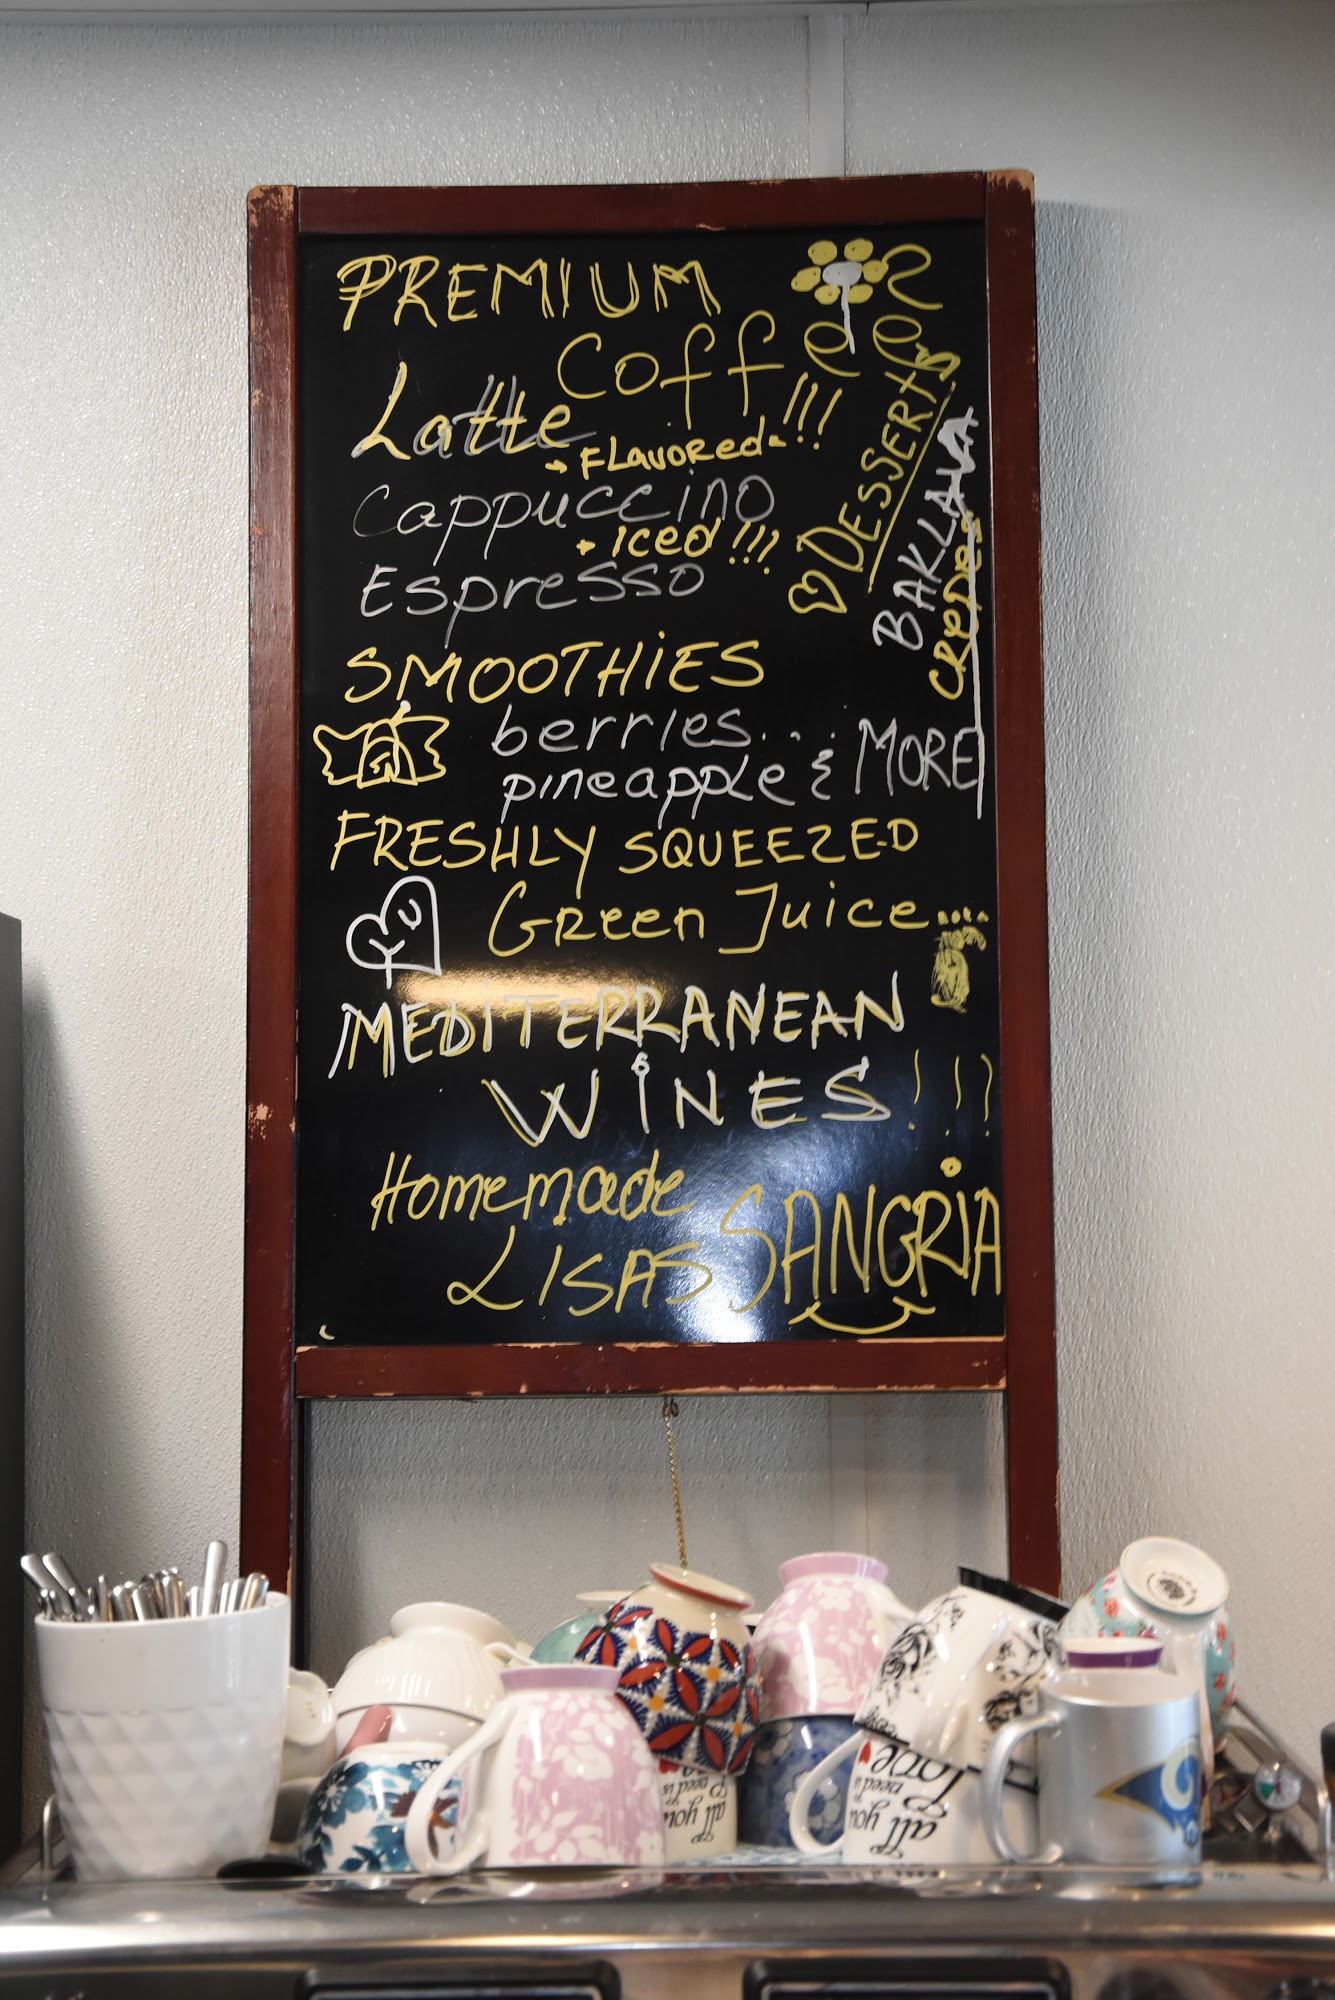 PREMIUM
Coffee
Latte !!!
→ FLavored
Cappuccino
→ Iced !!!
Espresso
DESSERTS
BAKLAVA
crepes
SMOOTHIES
berries...
pineapple & MORE
FRESHLY SQUEEZED
Green Juice...
MEDiTERRANEAN
WiNES!!!
Homemade
LISAS SANGRIA
all you
need is
love
all you
need is